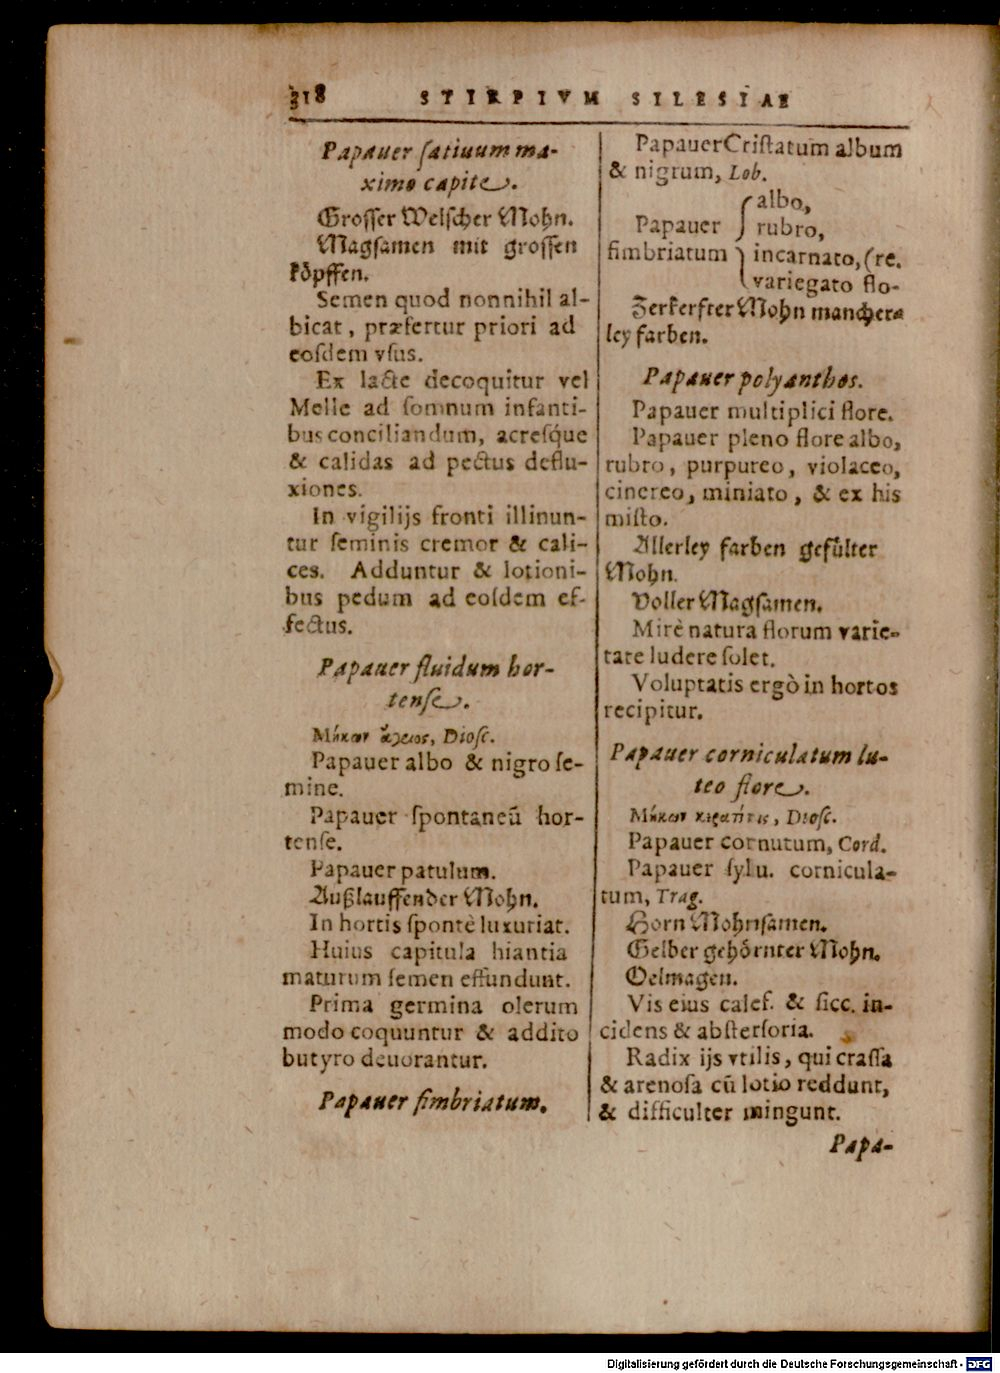 318 STIRPIVM SILESIAE
Papauer ſatiuum ma-
ximo capite.
Groſſer Welſcher Mohn.
Magſamen mit groſſen
koͤpffen.
Semen quod nonnihil al-
bicat, præfertur priori ad
eoſdem vſus.
Ex lacte decoquitur vel
Melle ad ſomnum infanti-
bus conciliandum, acreſq́ue
& calidas ad pectus deflu-
xiones.
In vigilijs fronti illinun-
tur ſeminis cremor & cali-
ces. Adduntur & lotioni-
bus pedum ad eoſdem ef-
fectus.
Papauer fluidum hor-
tenſe.
Μήκων Dioſc.
Papauer albo & nigro ſe-
mine.
Papauer ſpontaneū hor-
tenſe.
Papauer patulum.
Außlauffender Mohn.
In hortis ſpontè luxuriat.
Huius capitula hiantia
maturum ſemen effundunt.
Prima germina olerum
modo coquuntur & addito
butyro deuorantur.
Papauer fimbriatum.
Papauer Criſtatum album
& nigrum, Lob.
albo,
Papauer rubro,
fimbriatum incarnato, (re.
variegato flo-
Zerkerfter Mohn mancher-
ley farben.
Papauer polyanthos.
Papauer multiplici flore.
Papauer pleno flore albo,
rubro, purpureo, violaceo,
cinereo, miniato, & ex his
miſto.
Allerley farben gefuͤlter
Mohn.
Voller Magſamen.
Mirè natura florum varie-
tate ludere ſolet.
Voluptatis ergò in hortos
recipitur.
Papauer corniculatum lu-
teo flore.
Μήκων κερατίτις, Dioſc.
Papauer cornutum, Cord.
Papauer ſylu. cornicula-
tum, Trag.
Horn Mohnſamen.
Gelber gehoͤrnter Mohn.
Oelmagen.
Vis eius calef. & ſicc. in-
cidens & abſterſoria.
Radix ijs vtilis, qui craſſa
& arenoſa cū lotio reddunt,
& difficulter mingunt.
Papa-
Digitalisierung gefördert durch die Deutsche Forschungsgemeinschaft - DFG